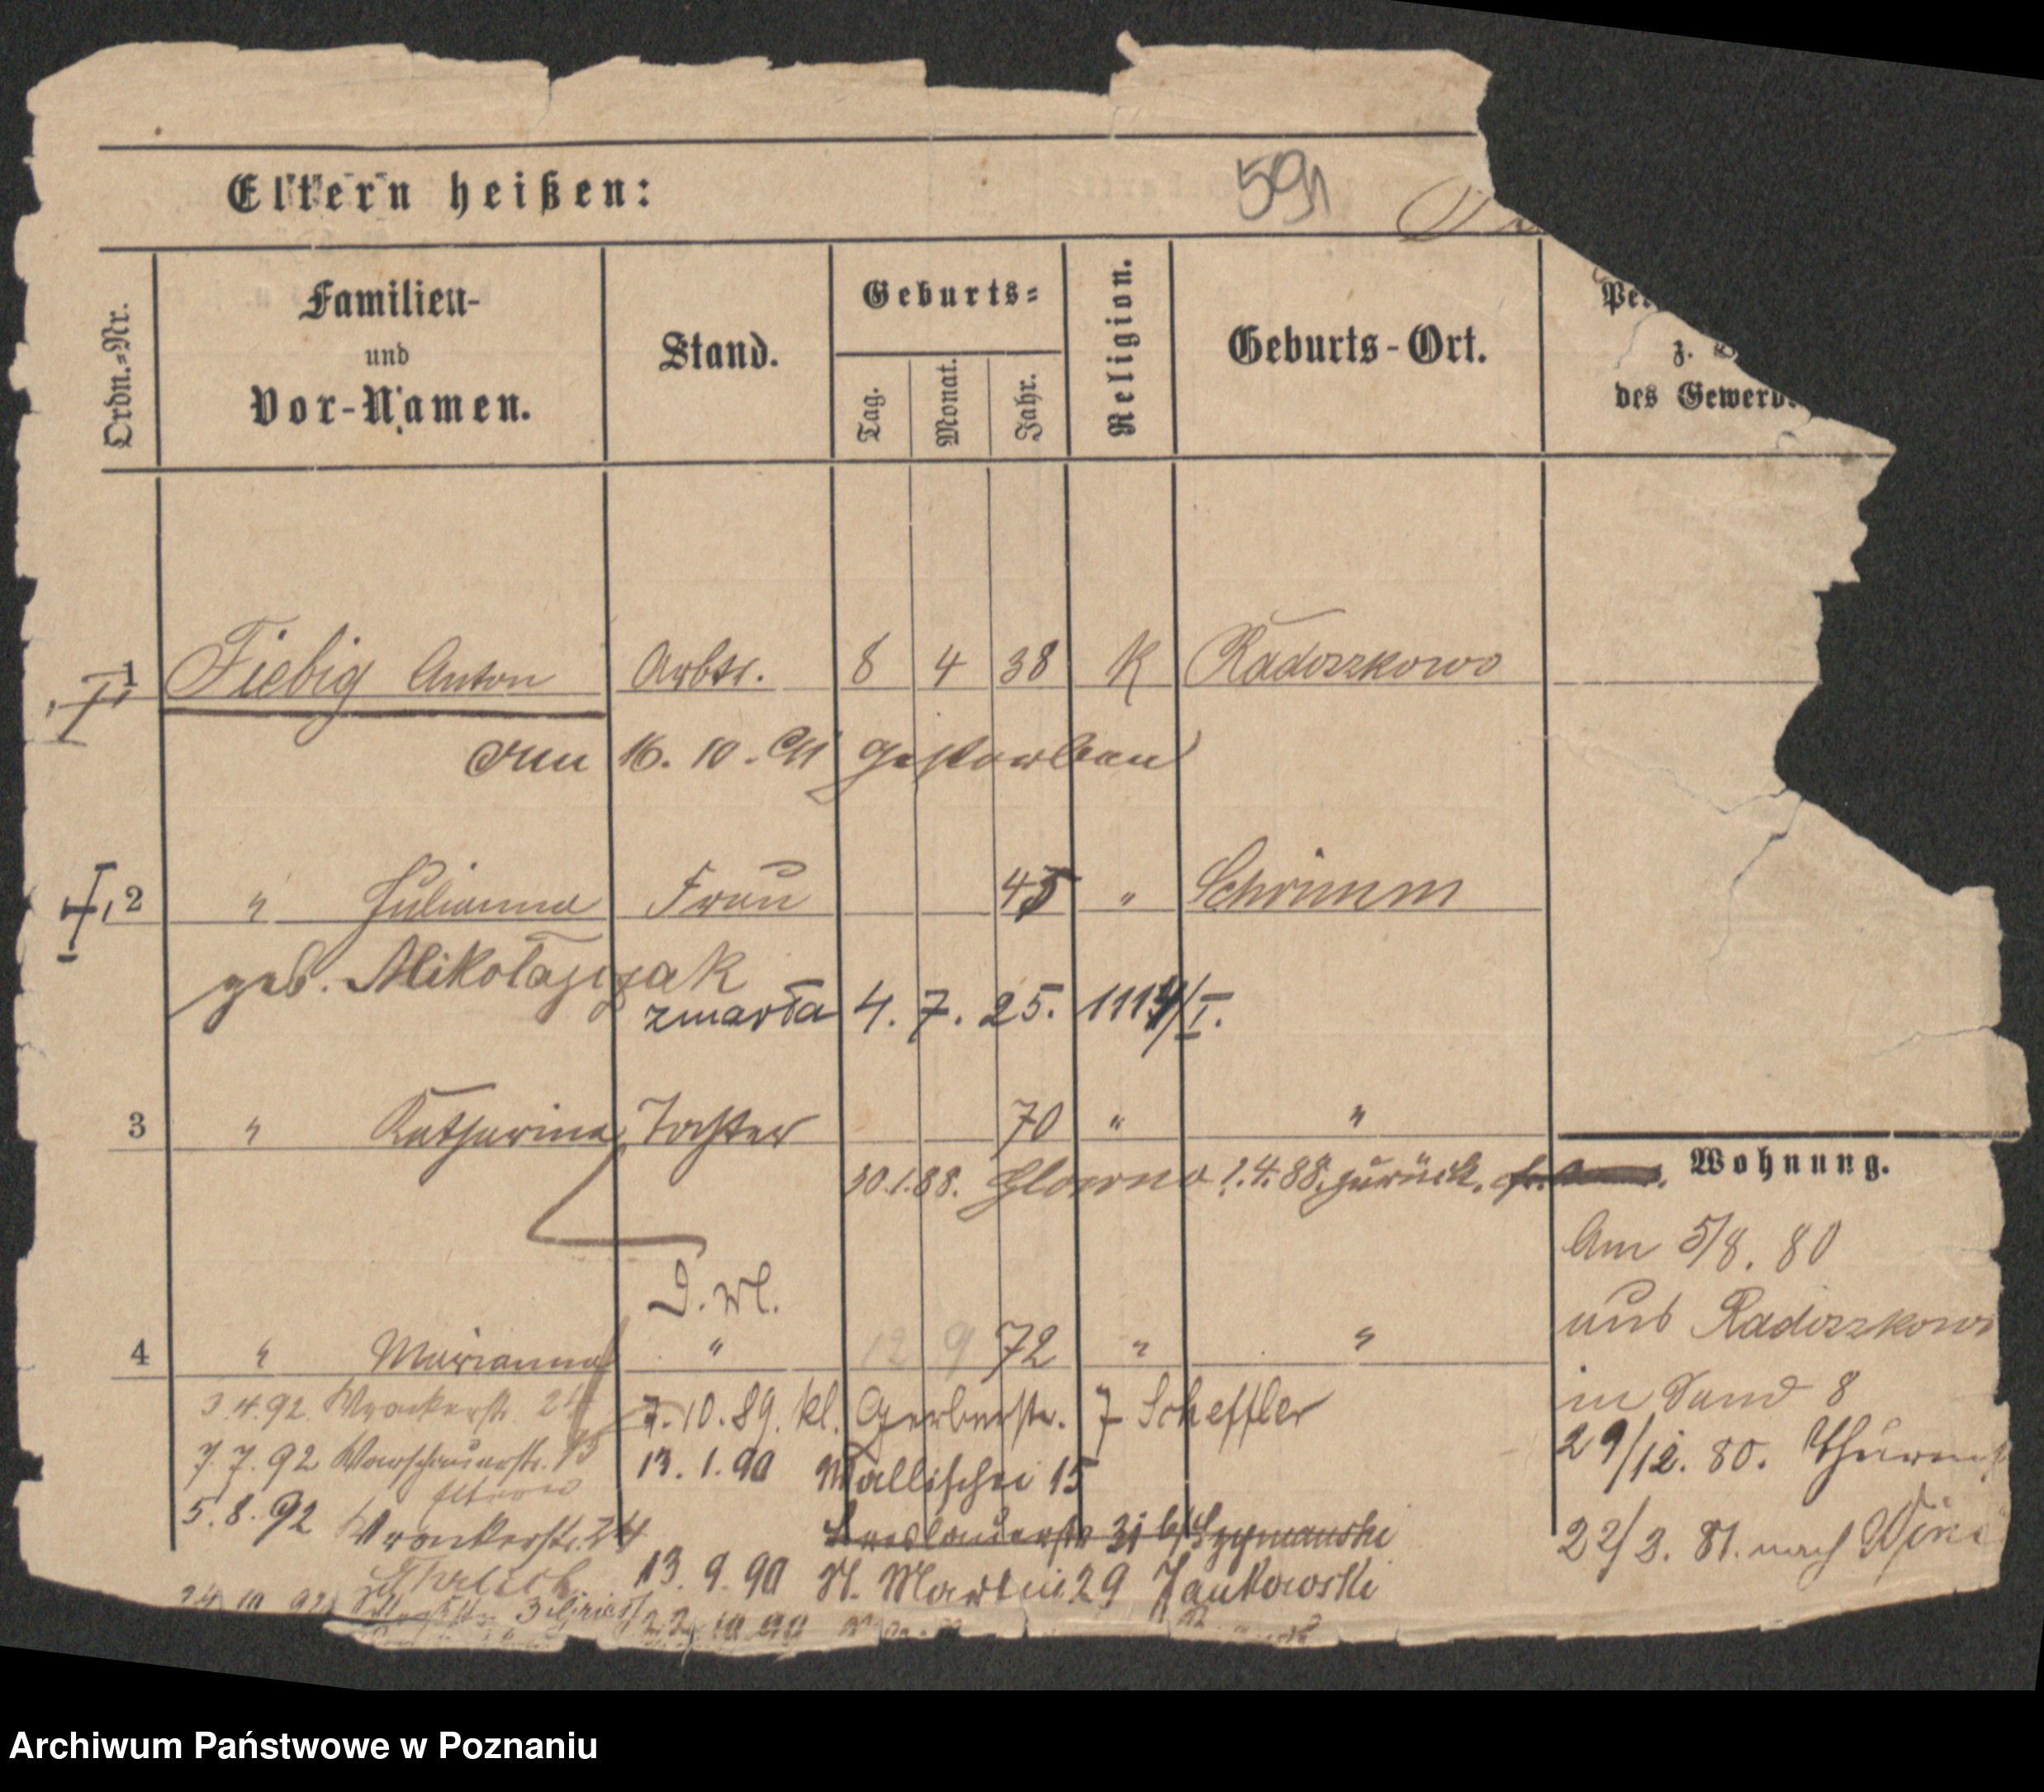 Eltern heißen:
591
Ordn.=Nr.
Familien-
und
Vor-Namen.
Stand.
Geburts=
Tag.
Monat.
Jahr.
Religion.
Geburts-Ort.
Pe
z.
des Gewerb
1 Fiebig Anton Arbtr. 8 4 38 K Radozkowo
am 16. 10. 91 gestorben
2 " Julianna Frau 45 " Schrimm
geb. Mikołajczak
zmarła 4. 7. 25. 1114/I.
3 " Katharina Tochter 70 " "
30.1.88. Glowno 1.4.88. zurück.
Wohnung.
D. Wl.
4 " Marianna " 12 9 72 " "
3.4.92. Wronkerstr. 24
7.10.89. kl. Gerberstr. 7 Scheffler
7.7.92 Warschauerstr. 15
13.1.90 Wallischei 15
5.8.92 Wronkerstr. 24
Breslauerstr 31 b/ Szymanski
13.9.90 St. Martin 29 Jankowski
24 10 92
22 10 90
Am 5/8. 80
aus Radozkowo
in Sand 8
29/12. 80. Thurm
22/3. 81. nach Wini